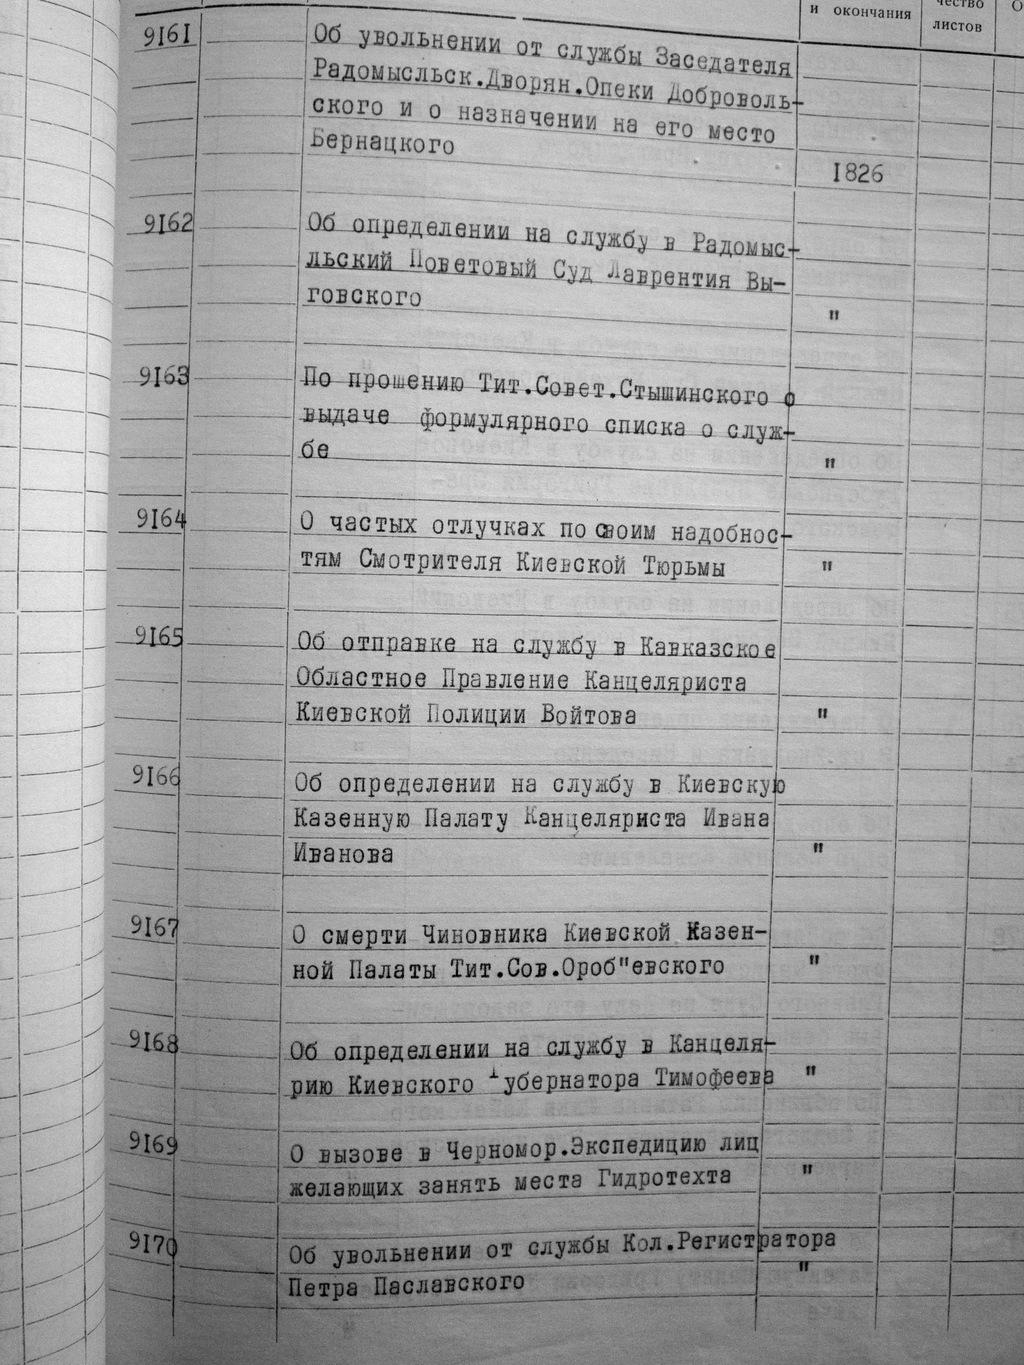 и окончания
чество
листов
9161
Об увольнении от службы Заседателя
Радомысльск.Дворян.Опеки Доброволь-
ского и о назначении на его место
Бернацкого
1826
9162
Об определении на службу в Радомыс-
льский Поветовый Суд Лаврентия Вы-
говского
"
9163
По прошению Тит.Совет.Стышинского о
выдаче формулярного списка о служ-
бе
"
9164
О частых отлучках по своим надобнос-
тям Смотрителя Киевской Тюрьмы
"
9165
Об отправке на службу в Кавказское
Областное Правление Канцеляриста
Киевской Полиции Войтова
"
9166
Об определении на службу в Киевскую
Казенную Палату Канцеляриста Ивана
Иванова
"
9167
О смерти Чиновника Киевской Казен-
ной Палаты Тит.Сов.Ороб"евского
"
9168
Об определении на службу в Канцеля-
рию Киевского Губернатора Тимофеева
"
9169
О вызове в Черномор.Экспедицию лиц
желающих занять места Гидротехта
"
9170
Об увольнении от службы Кол.Регистратора
Петра Паславского
"